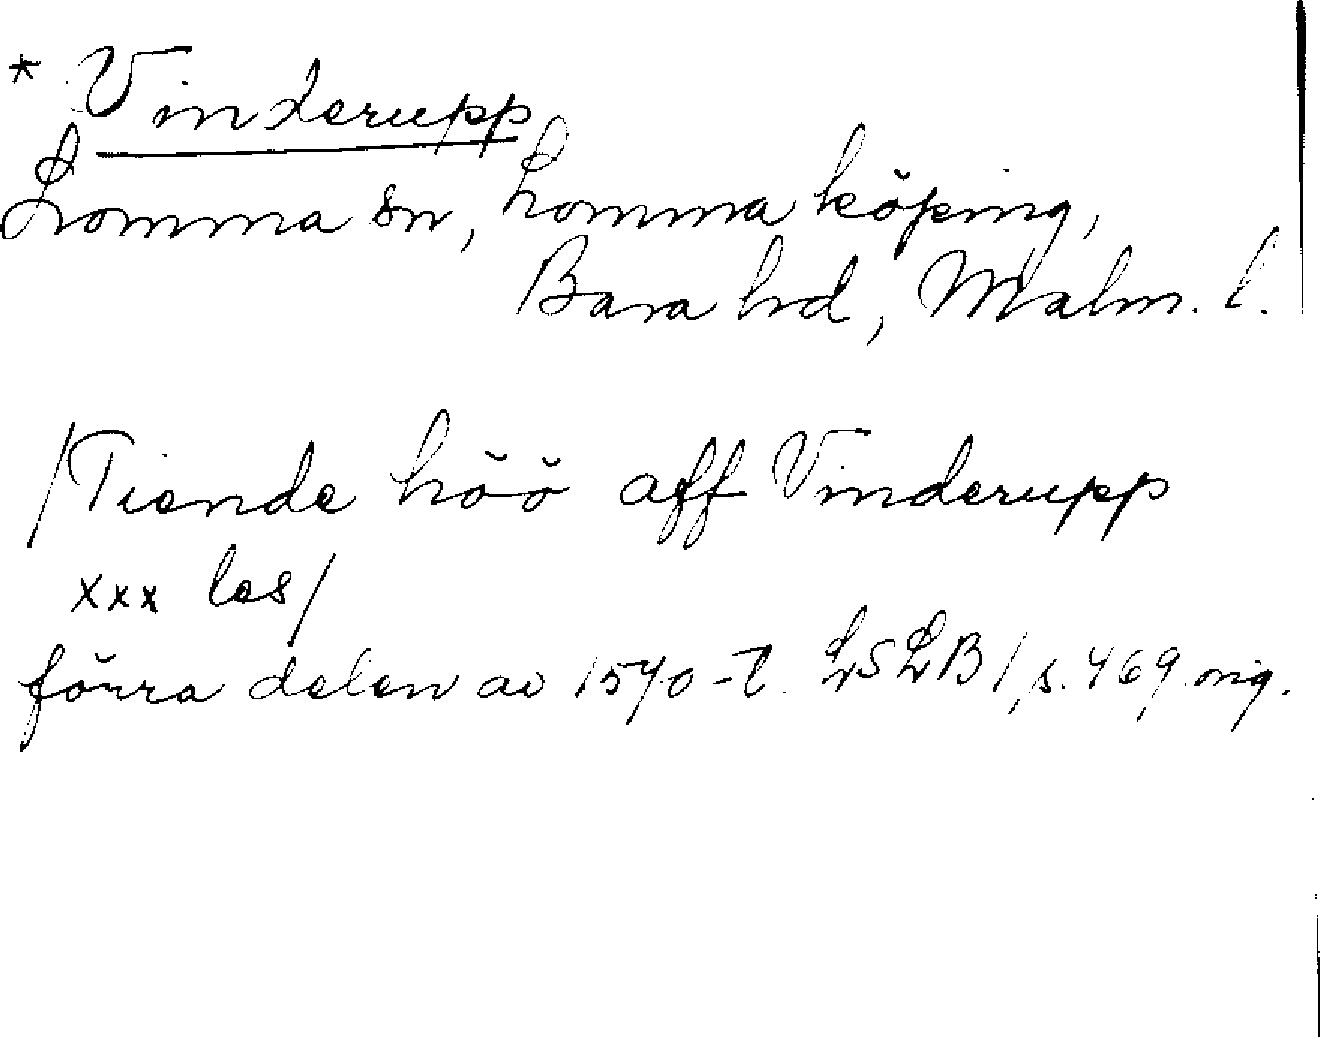 * Vinderupp
Lomma sn, Lomma köping,
Bara hd, Malm. l.
/Tiende höö aff Vinderupp
xxx les/
förra delen av 1570-t. LSLB 1, s. 469 orig.